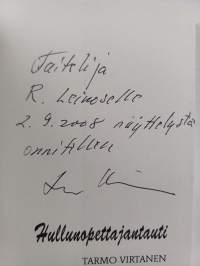 Taiteilija
R. Leinoselle
2.9.2008 näyttelystä
onnitellen
Hullunopettajantauti
TARMO VIRTANEN